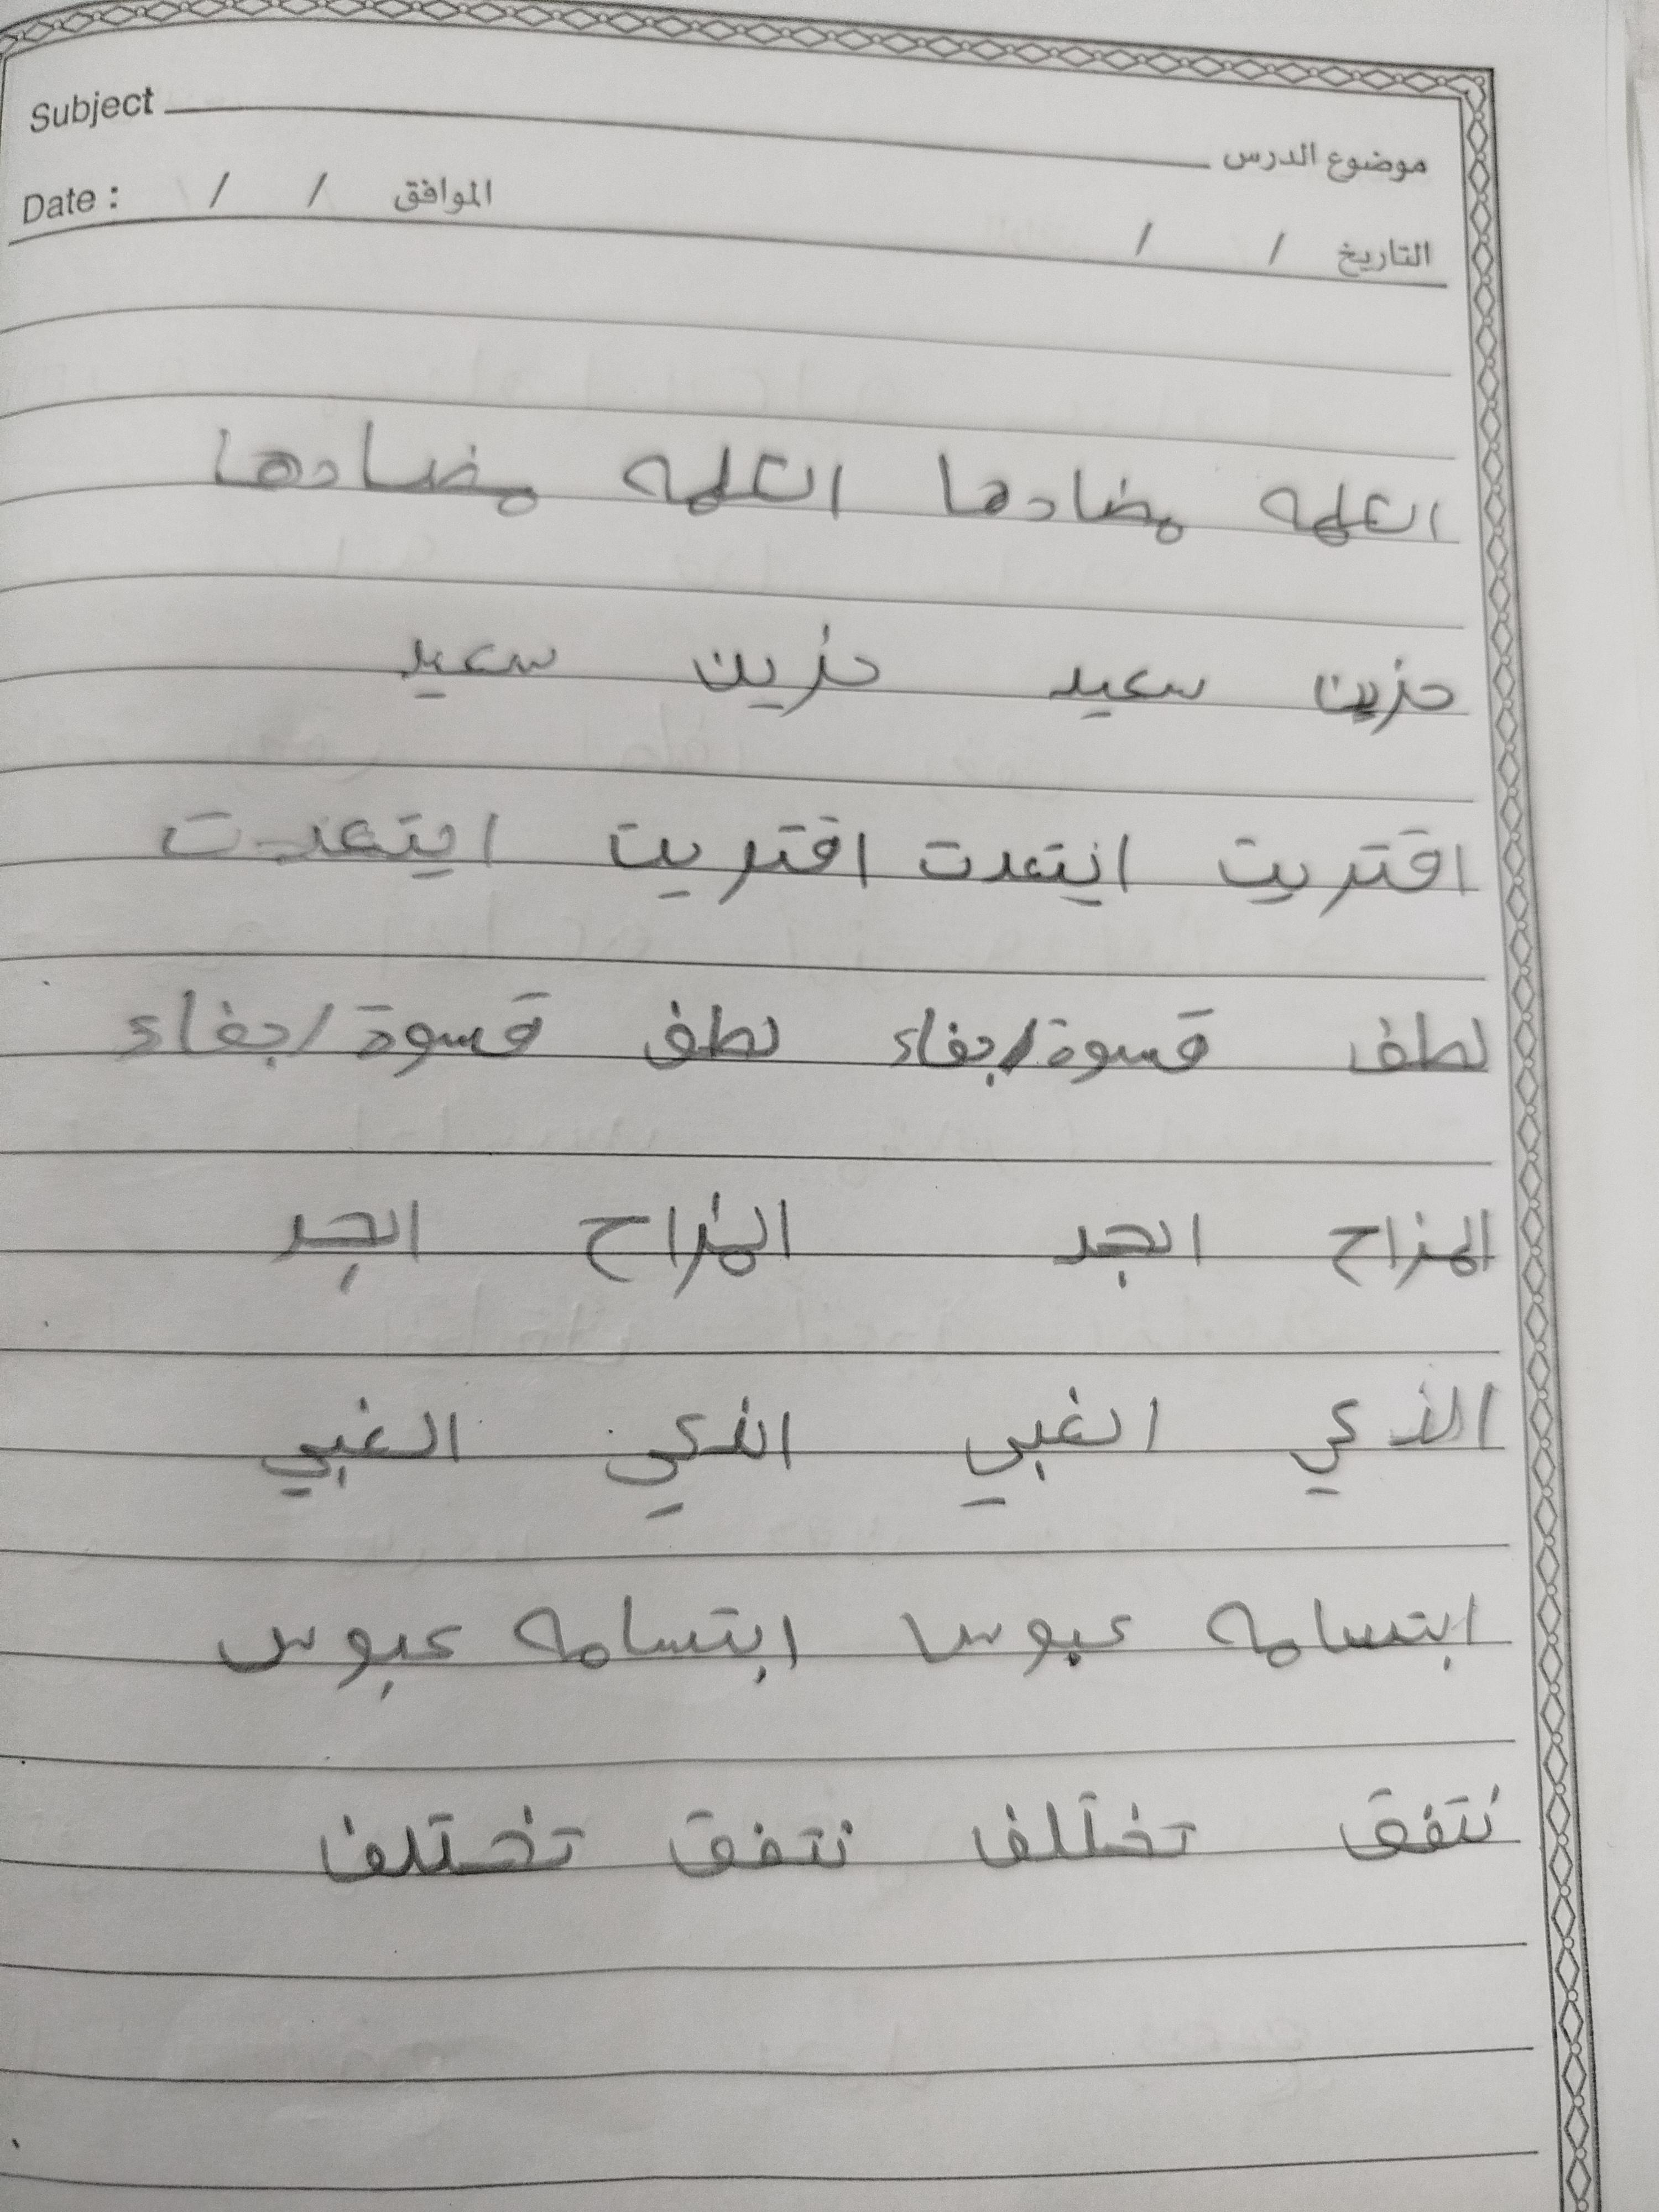 Subject موضوع الدرس
Date : / / الموافق / / التاريخ
الكلمه مضادها الكلمه مضادها
حزين سعيد حزين سعيد
اقتربت ابتعدت اقتربت ابتعدت
لطف قسوة/جفاء لطف قسوة/جفاء
المزاح الجد المزاح الجد
الذكي الغبي الذكي الغبي
ابتسامه عبوس ابتسامه عبوس
نتفق تختلف نتفق تختلف